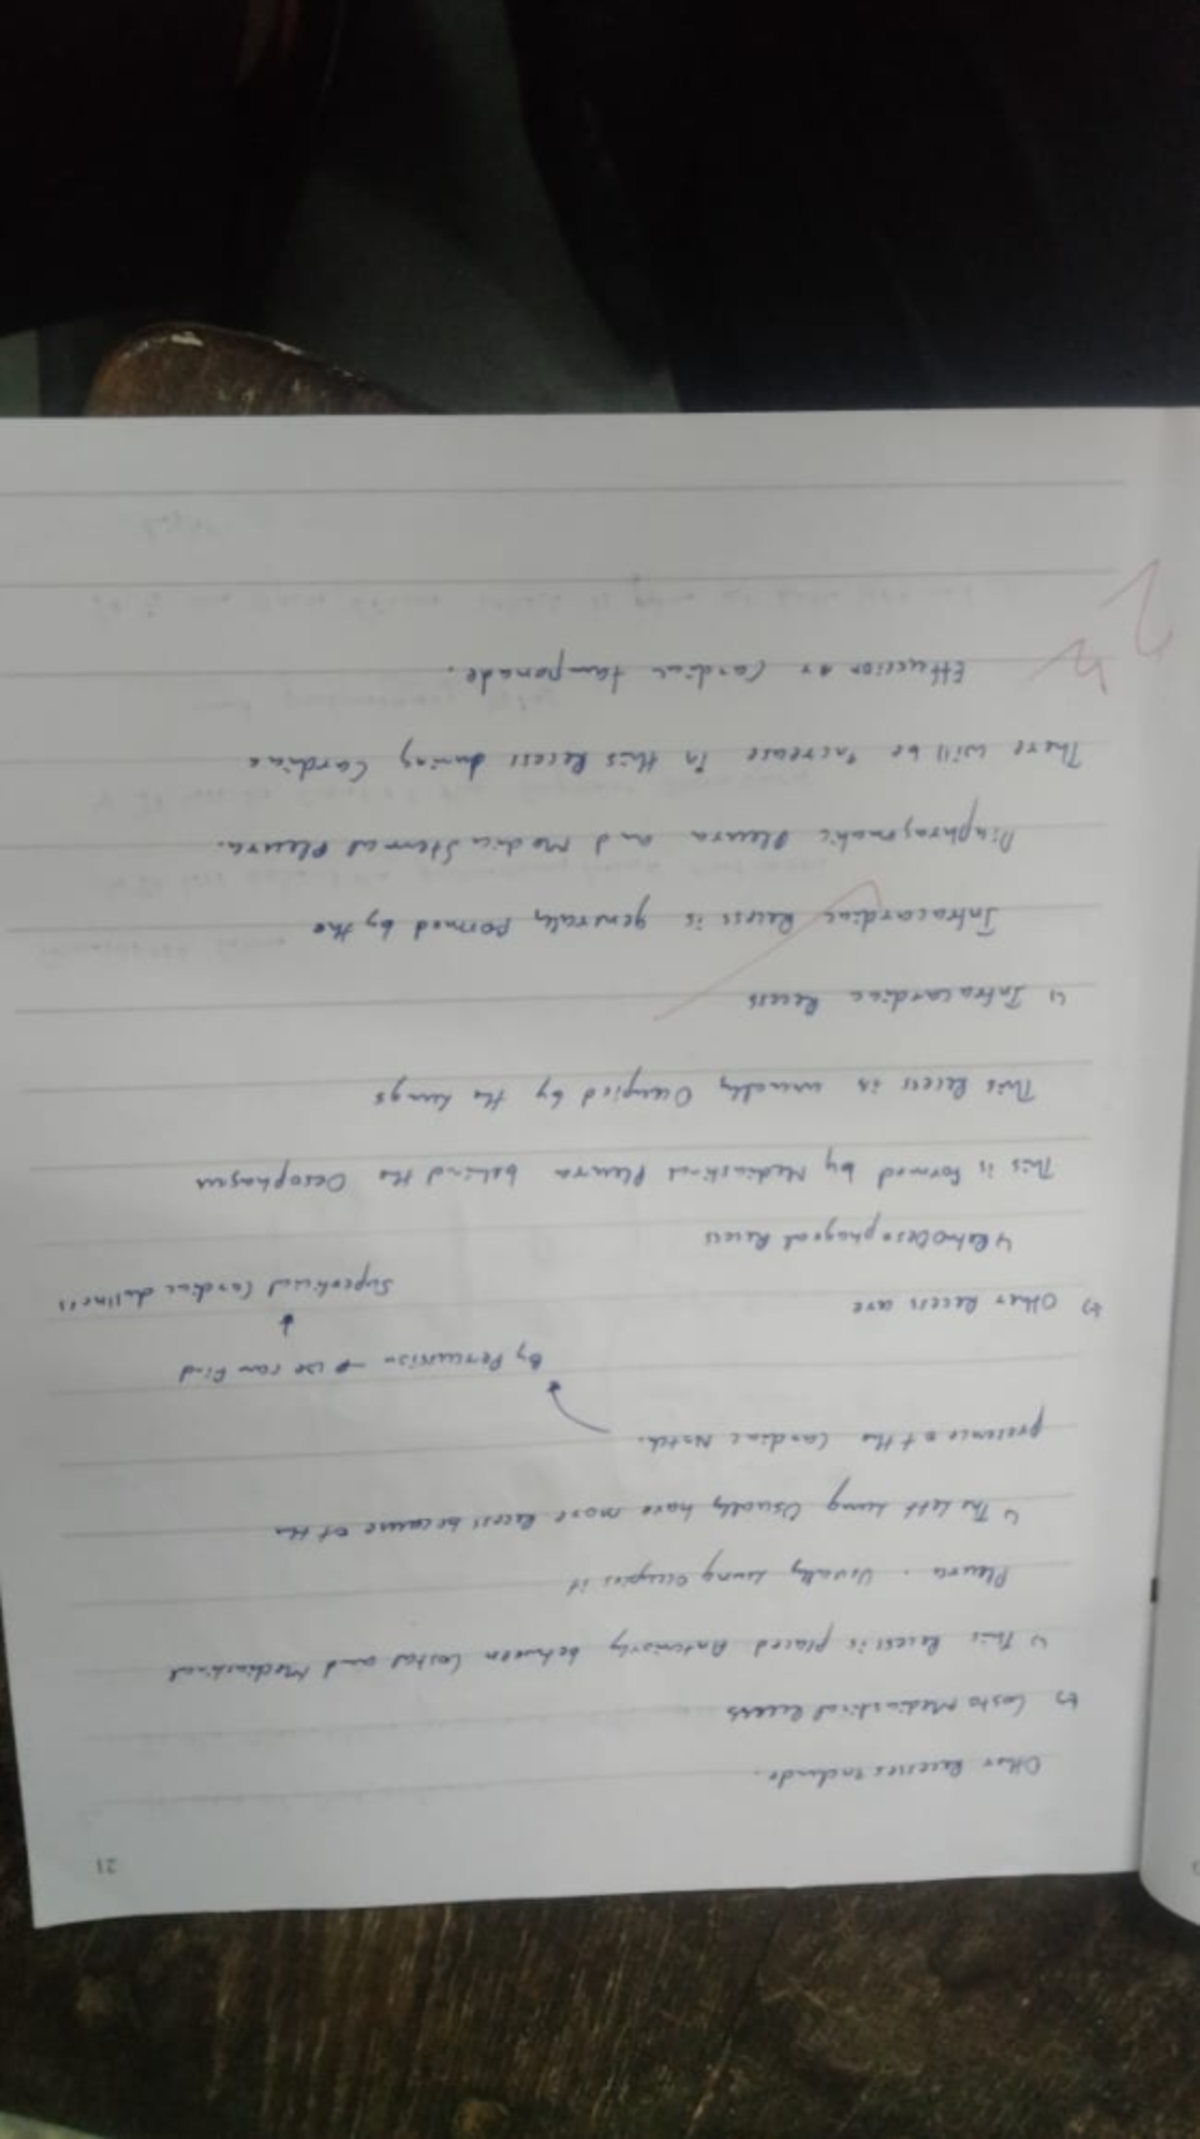 21
Other Recesses include.
↳ Costo Mediastinal Recess
↳ This Recess is placed Anteriorly between Costal and Mediastinal
Pleura. Usually lung occupies it
↳ The left lung Usually have more Recess because of the
presence of the Cardiac Notch.
By Percussion → we can find
↓
Superficial Cardiac dullness
↳ Other Recess are
↳ RetroOesophageal Recess
This is formed by Mediastinal Pleura behind the Oesophagus
This Recess is usually Occupied by the lungs
↳ Infracardiac Recess
Infracardiac Recess is generally formed by the
Diaphragmatic Pleura and MediaSternal Pleura.
There will be increase in this Recess during Cardiac
Effussion or Cardiac tamponade.